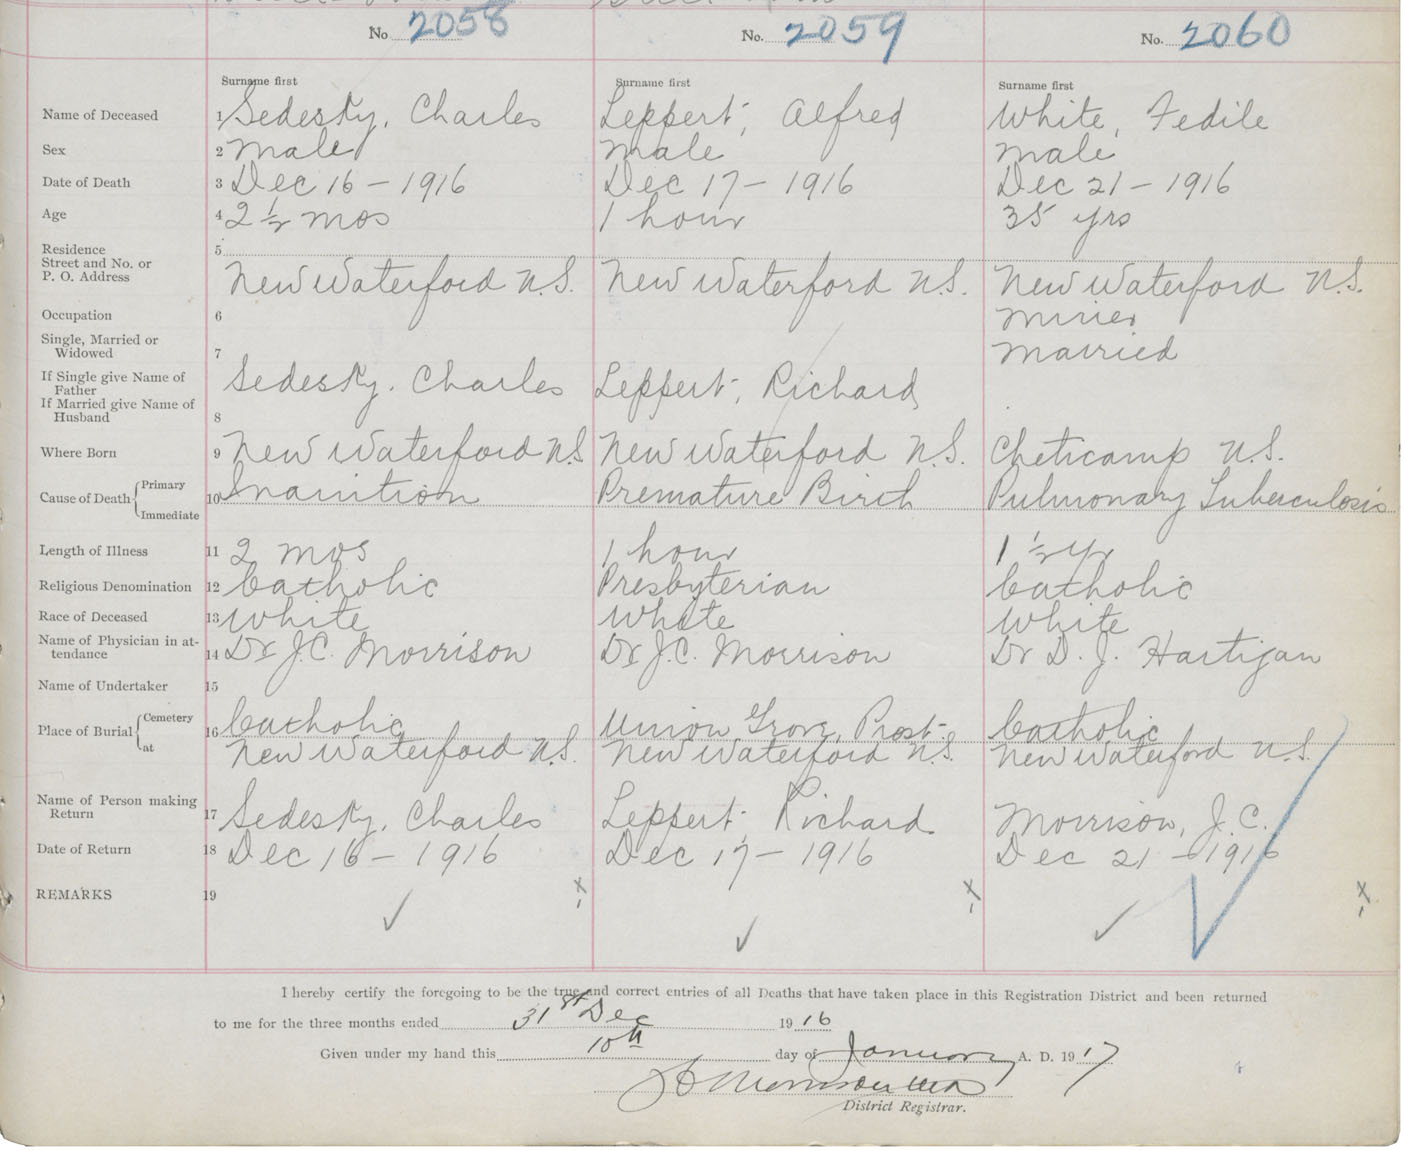 No 2058 No. 2059 No. 2060
Surname first Surname first Surname first
Name of Deceased 1 Sedesky, Charles Leppert, Alfred White, Fedile
Sex 2 male male male
Date of Death 3 Dec 16 - 1916 Dec 17 - 1916 Dec 21 - 1916
Age 4 2 1/2 mos 1 hour 35 yrs
Residence 5
Street and No. or
P. O. Address New Waterford N.S. New Waterford N.S. New Waterford N.S.
Occupation 6 Miner
Single, Married or
Widowed 7 Married
If Single give Name of
Father Sedesky, Charles Leppert, Richard
If Married give Name of
Husband 8
Where Born 9 New Waterford N.S New Waterford N.S. Cheticamp N.S.
Cause of Death { Primary
10 Inanition Premature Birth Pulmonary Tuberculosis
Immediate
Length of Illness 11 2 mos 1 hour 1 1/2 yr
Religious Denomination 12 Catholic Presbyterian Catholic
Race of Deceased 13 White White White
Name of Physician in at-
tendance 14 Dr J.C. Morrison Dr J.C. Morrison Dr D. J. Hartigan
Name of Undertaker 15
Place of Burial { Cemetery 16 Catholic Union Grove, Prest. Catholic
at New Waterford N.S. New Waterford N.S New Waterford N.S.
Name of Person making
Return 17 Sedesky, Charles Leppert, Richard Morrison, J.C.
Date of Return 18 Dec 16 - 1916 Dec 17 - 1916 Dec 21 - 1916
REMARKS 19
I hereby certify the foregoing to be the true and correct entries of all Deaths that have taken place in this Registration District and been returned
to me for the three months ended 31st Dec 19 16
Given under my hand this 10th day of January A. D. 19 17
J C Morrison MD
District Registrar.